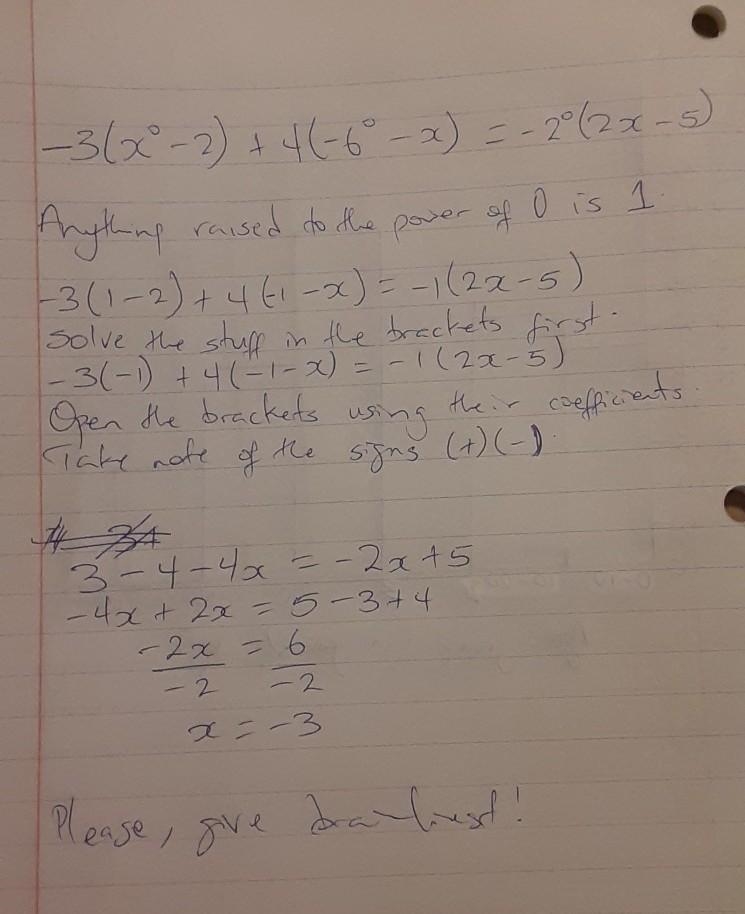 -3(x⁰ - 2) + 4(-6⁰ - x) = -2⁰(2x - 5)
Anything raised to the power of 0 is 1.
-3(1 - 2) + 4(-1 - x) = -1(2x - 5)
Solve the stuff in the brackets first.
-3(-1) + 4(-1 - x) = -1(2x - 5)
Open the brackets using their coefficients.
Take note of the signs (+)(-).
3 - 4 - 4x = -2x + 5
-4x + 2x = 5 - 3 + 4
-2x = 6
-2 -2
x = -3
Please, give brainliest!